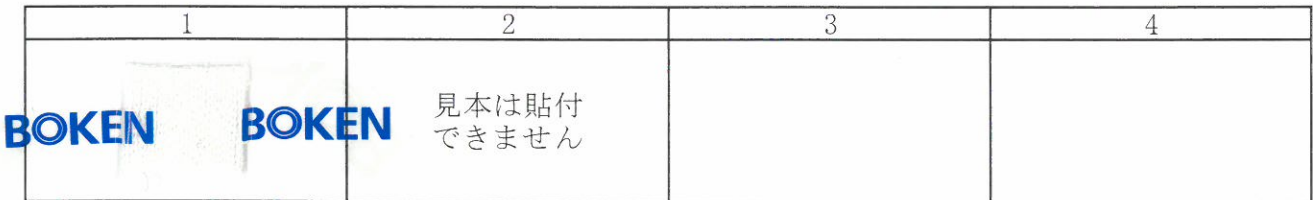 1 2 3 4
BOKEN BOKEN 見本は貼付
できません